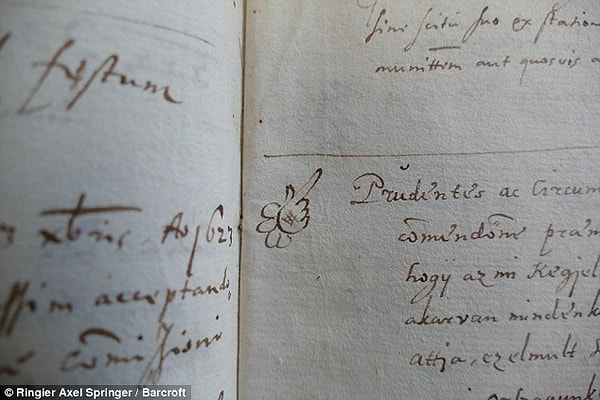 festum
xbris, Ao 1623
ssim acceptandi,
com̄issioni
sine scitu suo ex station
munittem aut quosvis a
Prudentes ac Circum
com̄endone praem
hogÿ az mi Kegjel
akarvan mindenk
attja, ez elmult
© Ringier Axel Springer / Barcroft